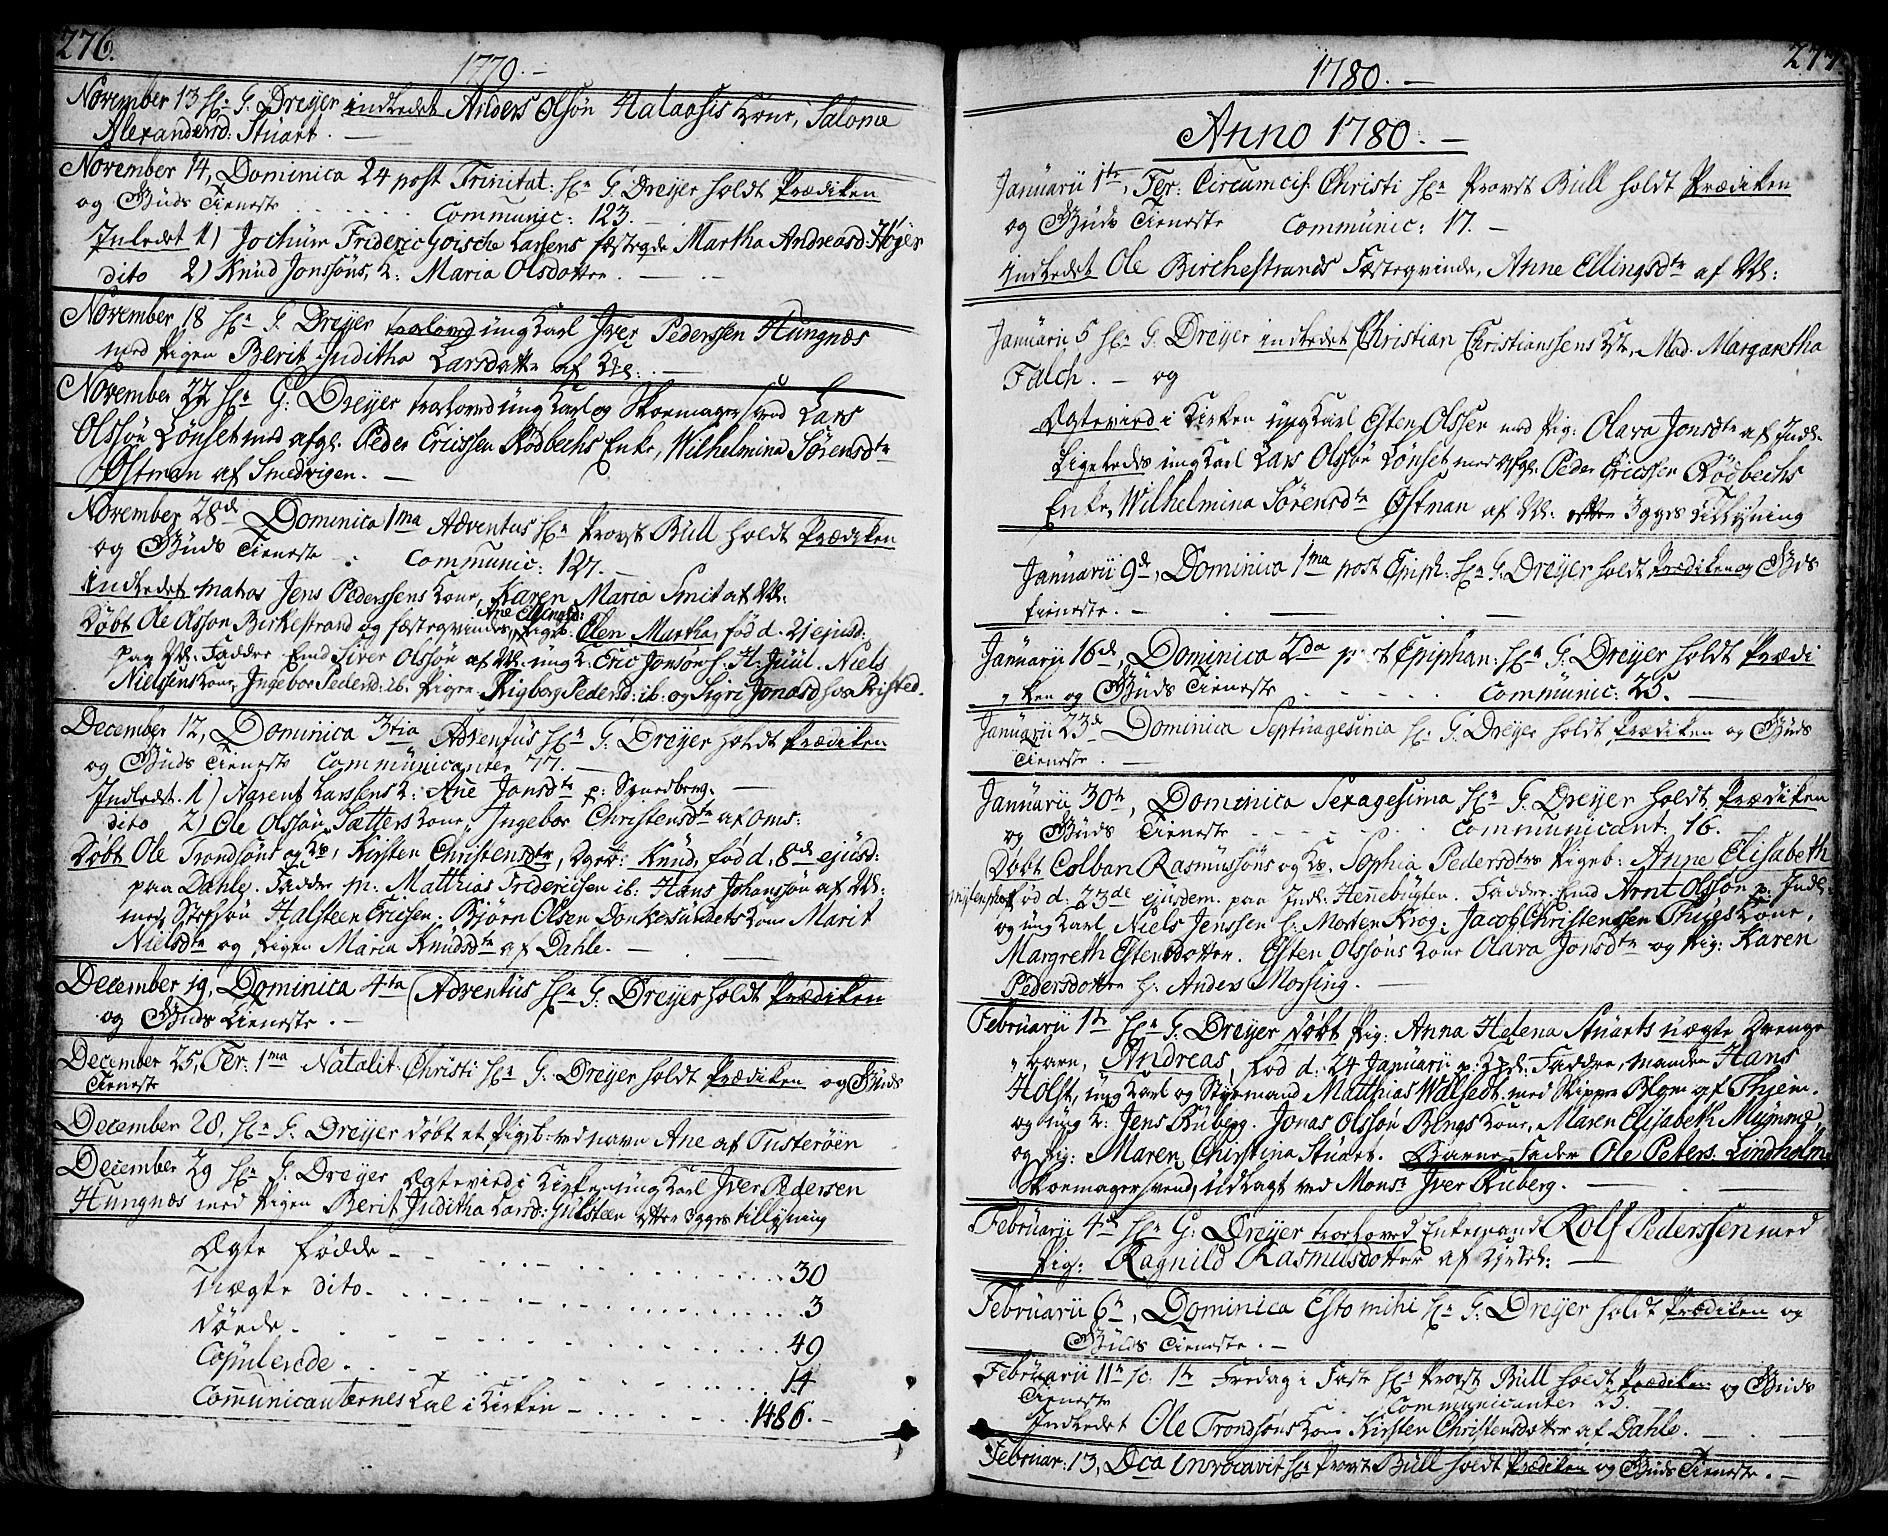 276.
1779. -
November 13 Hr: G: Dreyer indledet Anders Olsøn Kone, Salome
Alexandersd: Stuart. -
November 14, Dominica 24 post Trinitat: Hr: G: Dreyer holdt Prædiken
og Guds Tieneste Communic: 123. -
Inledet 1) Jochum Frideric Goische Lassens festegde Martha Andreasd Høyer
dito 2) Knud Jonssøns K: Maria Olsdotter. -
November 18 Hr: G: Dreyer troloved ung Karl Iver Pederssen Hungnæs
med Pigen Berit Juditha Larsdotter af
November 22 Hr: G: Dreyer troloved ung Karl og Skoemagersvend Lars
Olssøn Lønset med afgl: Peder Ericssen Rødbechs Enke, Wilhelmina Sørensdtr
Østman af Smedvigen. -
November 28de Dominica 1ma Adventus Hr: Provst Bull holdt Prædiken
og Guds Tieneste Communic: 127. -
Indledet matros Jens Pederssens Kone, Karen Maria Smit af
Ane Ellingsd:
Døbt Ole Olsson Birkestrand og festegvindes Pigeb: Elen Martha, fød d. 21 ejusd:
paa Fadder Emd Siver Olssøn af ung K: Eric Jonsøn h. H: Juul. Niels
Nielsens Kone, Ingebor Pedersd: ib. Pigen Rigborg Pedersd: ib: og Sigri Jonasd hos
December 12, Dominica 3tia Adventus Hr: G: Dreyer holdt Prædiken
og Guds Tieneste Communicanter 77. -
Indledt. 1) Agrent Larssens K: Ane Jonsdtr p: -
dito 2) Ole Olssøn Sætters Kone, Ingebor Christensdtr af Oms:
Døbt Ole Trondsøns og Ks, Kirsten Christensdtr, Dgeb: Knud, fød d: 8de ejusd:
paa Dahle. Fadder M: Matthias Friderichsen ib: Hans Johanssøn af
med Stefsøn Halsteen Ericsen: Bjørn Olsen Donkesundets Kone Marit
Nielsdtr og Pigen Maria Knudsdtr af Dahle. -
December 19, Dominica 4ta Adventus Hr: G: Dreyer holdt Prædiken
og Guds Tieneste. -
December 25, Fer: 1ma Natalit: Christi Hr: G: Dreyer holdt Prædiken og Guds
Tieneste
December 28, Hr: G: Dreyer døbt et Pigeb: ved navn Ane af Tusterøen
December 29 Hr: G: Dreyer Ægteviede i Kirken ung Karl Iver Pedersen
Hungnæs med Pigen Berit Juditha Larsd: Gulsteen efter 3ggrs tillysning
Ægte fødde - 30
Uægte dito. 3
Døede. 49
Copulerede. 14
Communicanternes Tal i Kirken - 1486. -
277.
1780. -
Anno 1780. -
Januarii 1te, Fer: Circumcis: Christi Hr: Provst Bull holdt Prædiken
og Guds Tieneste Communic: 17. -
Indledet Ole Birchestrands Festegvinde, Anne Ellingsdtr af
Januarii 5 Hr: G: Dreyer indledet Christian Christianssens Kst, Mad. Margaretha
Falch. - og
Ægteviede i Kirken ung Karl Esten Olssen med Pig: Olava Jonsdtr af Indl.
Ligeledes ung Karl Lars Olssøn Lønset med afgl: Peder Ericssen Rødbechs
Enke, Wilhelmina Sørensdtr Østman af efter 3ggrs Tillysning
Januarii 9de, Dominica 1ma post Epiph: Hr: G: Dreyer holdt Prædiken og Guds
tieneste. -
Januarii 16de, Dominica 2da post Epiphan: Hr: G: Dreyer holdt Prædi
ken og Guds Tieneste Communic: 25. -
Januarii 23de Dominica Septuagesimia Hr: G: Dreyer holdt Prædiken og Guds
Tieneste. -
Januarii 30te, Dominica Sexagesima Hr: G: Dreyer holdt Prædiken
og Guds Tieneste Communicant: 16. -
Døbt Colban Rasmussøns og Ks. Sophia Pedersdtrs Pigeb: Anne Elisabeth
fød d: 23de ejusdem paa Indl: Henebugten. Fadder Emd Arnt Olssøn p: Indl:
og ung Karl Niels Jenssen h: Morten Krog: Jacob Christenssen Thues Kone,
Margreth Estensdotter. Esten Olssøns Kone Olava Jonsdtr og Pig: Karen
Pedersdotter h: Anders Morsing. -
Februarii 1te Hr: G: Dreyer døbt Pig: Anna Helena Stuarts uægte Drenge
barn, Andreas, fød d: 24 Januarii p: Fadder, manden Hans
Holst, ung Karl og Styrmand Matthias Walsedt. med Skipper af Thiem.
og ung K: Jens Ruberg. Jonas Olssøn Bergs Kone, Maren Elisabeth Mumme,
og Pig: Maren Christina Stuart. Barne Fader Ole Peters. Lindholm
Skoemagersvend, udlagt ved Monsr Iver Ruberg. -
Februarii 4de Hr: G: Dreyer trolovede Enkemand Rolf Pederssen med
Pig: Ragnild Rasmusdotter af
Februarii 6te, Dominica Estomihi Hr: G: Dreyer holdt Prædiken og
Guds Tieneste. -
Februarii 11te sc: 1te Fredag i Faste Hr: Provst Bull holdt Prædiken og Guds
Tieneste Communicanter 23.
Indledet Ole Trondsøns Kone Kirsten Christensdotter af Dahle. -
Februar: 13, Dca Invocavit Hr: Provst Bull holdt Prædiken og Guds Tieneste. -